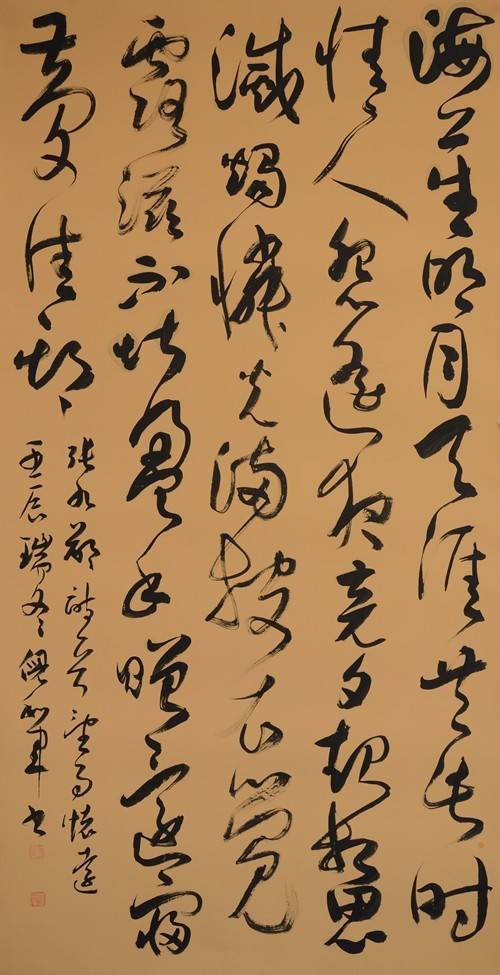 海上生明月天涯共此時
情人怨遙夜竟夕起相思
滅燭憐光滿披衣覺
露滋不堪盈手贈還寢
夢佳期
張九齡詩望月懷遠
壬辰瑞冬書